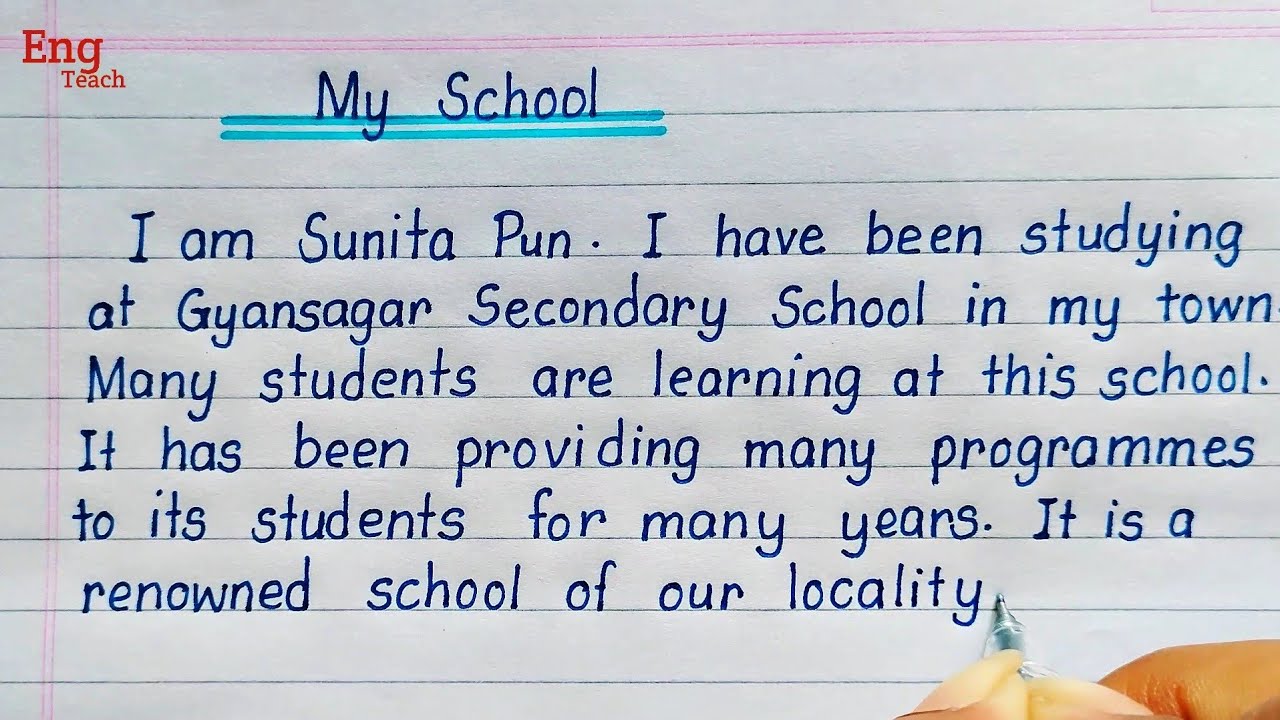 Eng
Teach
My School
I am Sunita Pun. I have been studying
at Gyansagar Secondary School in my town.
Many students are learning at this school.
It has been providing many programmes
to its students for many years. It is a
renowned school of our locality